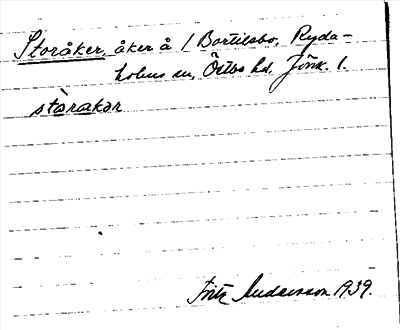 Storåker, åker å 1 Bortilsbo, Ryda-
holms sn, Östbo hd. Jönk. l.
stòrakər
Fritz Andersson 1939.